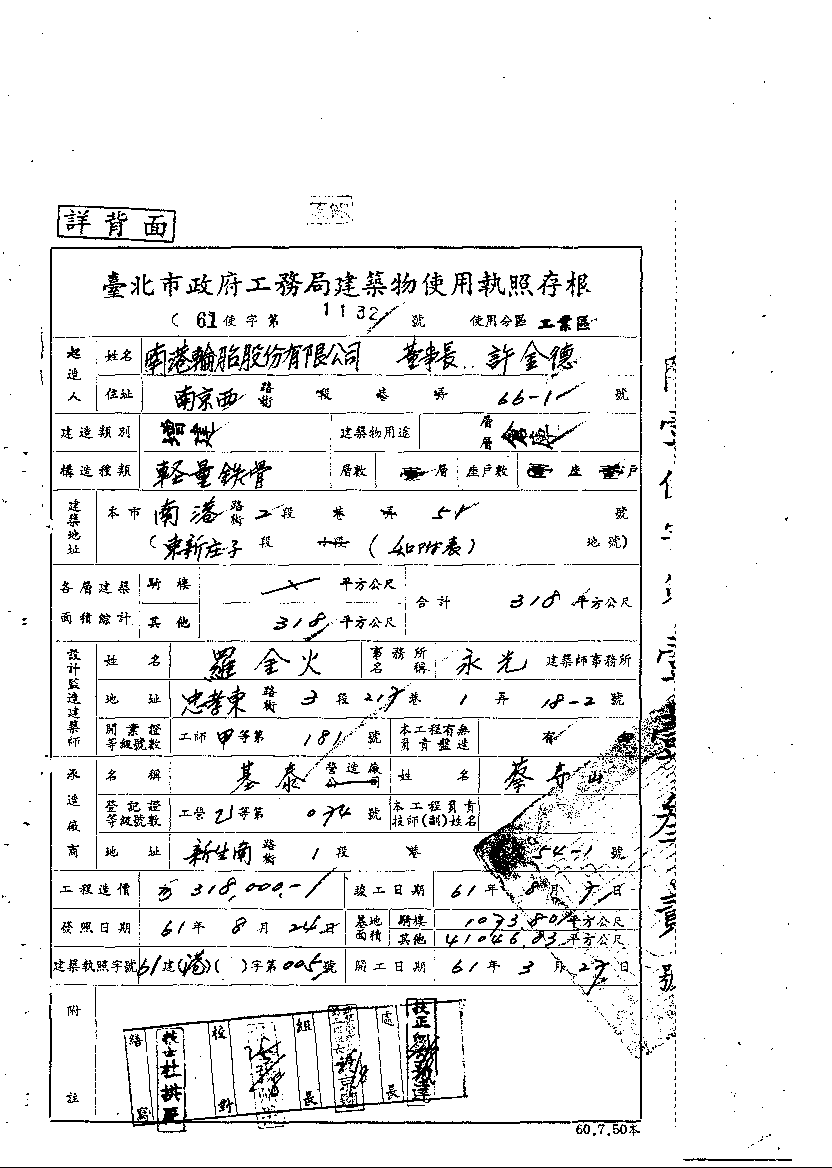 詳背面
臺北市政府工務局建築物使用執照存根
(61使字第 1132 號 使用分區 工業區
起造人 姓名 南港輪胎股份有限公司 董事長 許金德
住址 南京西 路街 段 巷 弄 66-1 號
建造類別 增建 建築物用途 層層 倉庫
構造種類 軽量鉄骨 層數 層 座戶數 座 戶
建築地址 本市 南港 路街 2 段 巷 弄 51 號
(東新庄子 段 小段 (如附表) 地號)
各層建築面積綜計 騎樓 平方公尺 合計 318 平方公尺
其他 318 平方公尺
設計監造建築師 姓名 羅金火 事務所名稱 永光 建築師事務所
地址 忠孝東 路街 3 段 217 巷 1 弄 18-2 號
開業證等級號數 工師 甲 等第 181 號 本工程有無負責監造 有
承造廠商 名稱 基泰 營造廠公司 姓名
登記證等級號數 工營 乙 等第 074 號 本工程負責技師(副)姓名
地址 新生南 路街 1 段 巷 54-1 號
工程造價 318,000.- 竣工日期 61 年 8 月 7 日
發照日期 61 年 8 月 24 日 基地面積 騎樓 1073.80 平方公尺
其他 41046.83 平方公尺
建築執照字號 61 建(港)( )字第 005 號 開工日期 61 年 3 月 27 日
附註
繕寫 校對 組長 處長
60.7.50本